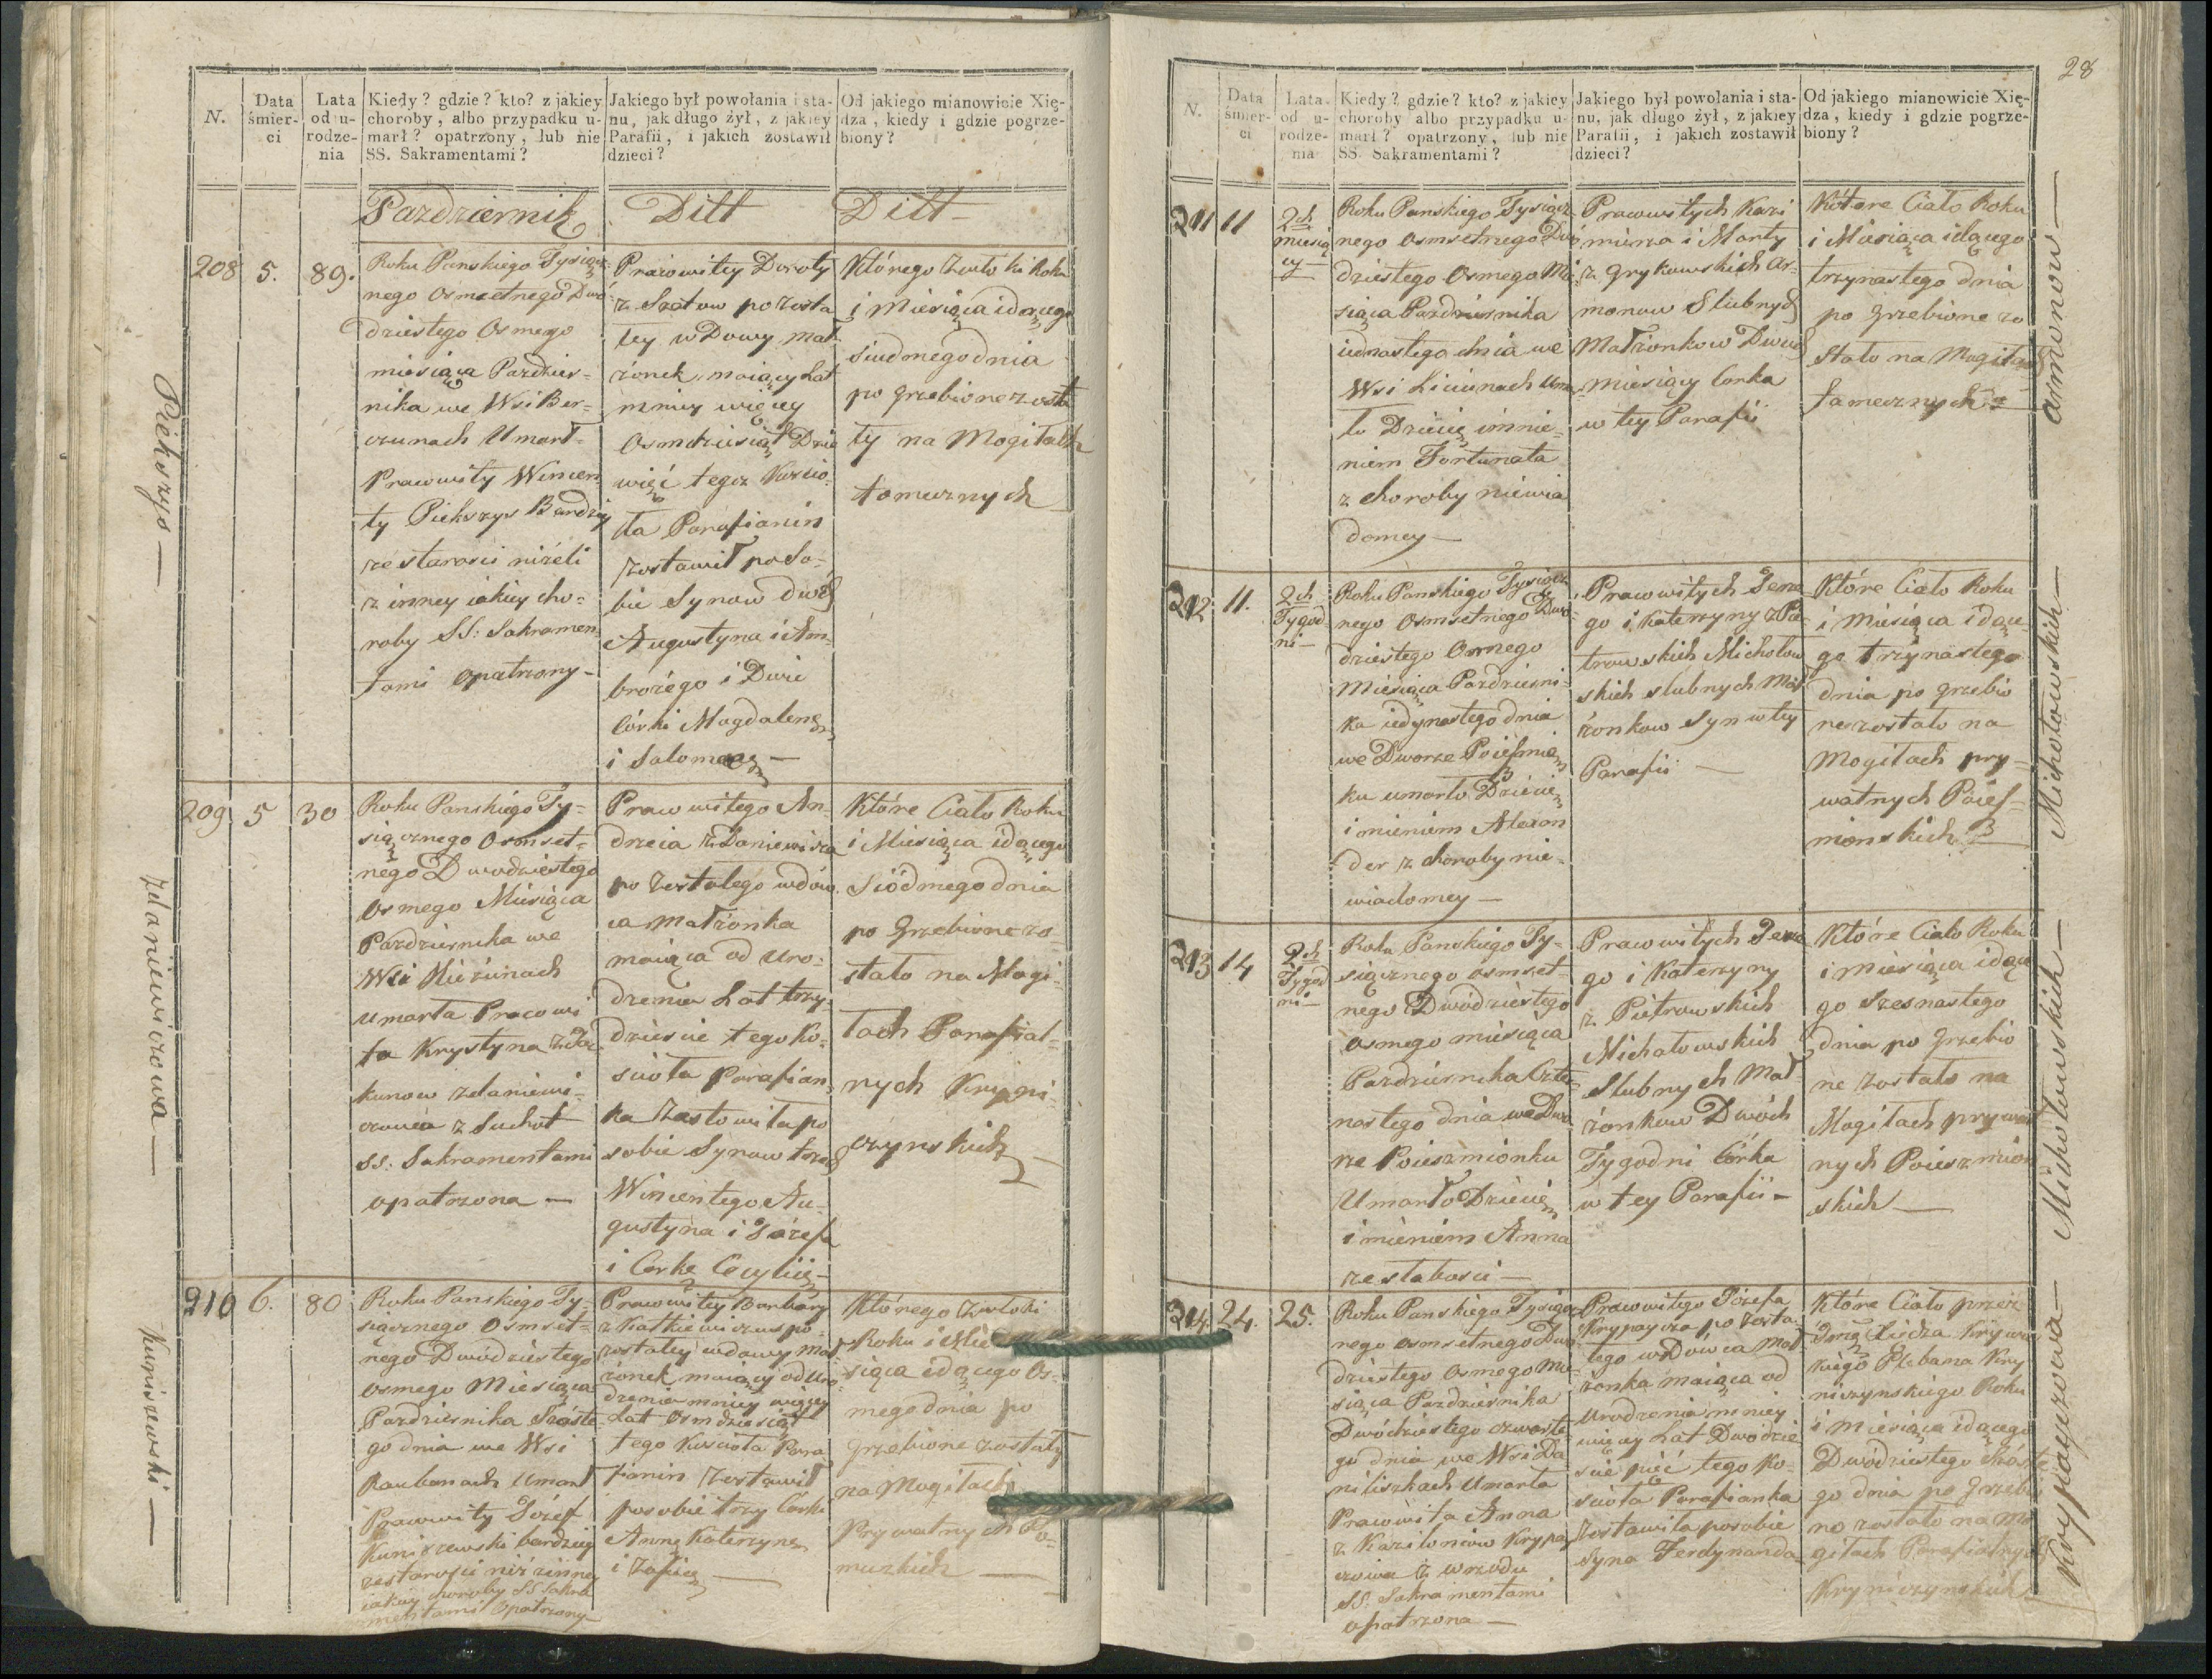 N.
Data śmierci
Lata od urodzenia
Kiedy? gdzie? kto? z jakiey
choroby, albo przypadku u-
marł? opatrzony, lub nie
SS. Sakramentami?
Jakiego był powołania i sta-
nu, jak długo żył, z jakiey
Parafii, i jakich zostawił
dzieci?
Od jakiego mianowicie Xię-
dza, kiedy i gdzie pogrze-
biony?
Pazdziernik
Ditt
Ditt
Piekszys —
208
5.
89.
Roku Panskiego Tysiącz-
nego Osmsetnego Dwó-
dziestego Osmego
miesiąca Pazdzier-
nika we Wsi Ber-
czunach Umarł
Prawowity Wincen
ty Piekszys Bardziey
ze starosci niżeli
z inney iakiey cho-
roby SS: Sakramen-
tami opatrzony —
Prawowitey Doroty
z Szatow pozosta
łey wdowy mał
zonek, maiący Lat
mniey więcey
Osmdziesiąt Dzie
więć tegoz Koscio-
ła Parafianin
zostawił po So-
bie Synow dwóch
Augustyna i Am-
brożego i Dwie
Córki Magdalenę
i Salomeę —
Którego zwłoki Roku
i Miesiąca idącego
siudmego dnia
po grzebione zosta
ły na Mogiłach
tomecznych
Zdaniewiczowa —
209
5
30
Roku Panskiego Ty-
siącznego Osmset-
nego Dwodziestego
Osmego Miesiąca
Pazdziernika we
Wsi Kieżunach
umarła Prawowi
ta Krystyna z
kunow Zdaniewi-
czowa z Suchot
SS. Sakramentami
opatrzona —
Prawowitego An-
drzeia Zdaniewicza
po zostałego wdow
ca Małżonka
maiąca od uro-
dzenia Lat trzy-
dziescie tego ko-
scioła Parafian-
ka Zastowiła po
sobie Synow trzech
Wincentego Au-
gustyna i Józefa
i Corke Cecylię —
Które Ciało Roku
i Miesiąca idącego
Siódmego dnia
po grzebione zo-
stało na Mogi-
łach Parafial-
nych Kryni-
czynskich —
Kuniszewski —
210
6.
80
Roku Panskiego Ty-
siącznego Osmset-
nego Dwódziestego
Osmego Miesiąca
Pazdziernika Szóste
go dnia we Wsi
Raubanach Umarł
Prawowity Józef
Kuniszewski bardziey
ze starosci niż zinney
iakiey choroby SS Sakra
mentami Opatrzony —
Prawowitey Barbary
z Kiatkiewiczow po-
zostałey wdowy Mał
żonek maiący od Uro-
dzenia mniey więcey
Lat Osmdziesiąt
tego Kościoła Para
fianin Zostawił
po sobie trzy Córki
Annę Katerzynę
i Zofię —
Którego Zwłoki
Roku i Mie
siąca idącego Os-
mego dnia po
grzebione zostały
na Mogiłach
Prywatnych Po-
muzkich —
28
N.
Data śmierci
Lata od urodzenia
Kiedy? gdzie? kto? z jakiey
choroby albo przypadku u-
marł? opatrzony, lub nie
SS. Sakramentami?
Jakiego był powołania i sta-
nu, jak długo żył, z jakiey
Parafii, i jakich zostawił
dzieci?
Od jakiego mianowicie Xię-
dza, kiedy i gdzie pogrze-
biony?
211
11
2ch
miesią
cy —
Roku Panskiego Tysiącz
nego Osmsetnego Dwó
dziestego Osmego Mie
siąca Pazdziernika
iednastego dnia we
Wsi Liciunach Umar
ło Dziecię imnie-
niem Fortunata
z choroby niewia
domey —
Prawowitych Kazi
mierza i Marty
z Grykowskich Ar-
monow Slubnych
Małżonkow Dwuch
miesięcy Corka
w tey Parafii
Kótore Ciało Roku
i Miesiąca idącego
trzynastego dnia
po grzebione zo
stało na Mogiłach
tamecznych —
Armonow —
212
11.
2ch
Tygod-
ni —
Roku Panskiego Tysiącz
nego Osmsetnego Dwó
dziestego Osmego
Miesiąca Pazdzierni-
ka iedynastego dnia
we Dworze Poieśmie
ku umarło Dziecię
imieniem Alexan
der z choroby nie-
wiadomey —
Prawowitych Jerze
go i Katerzyny z Pie-
trowskich Michałow
skich slubnych Mał
żonkow Syn w tey
Parafii —
Które Ciało Roku
i Miesiąca idące-
go trzynastego
dnia po grzebio
ne zostało na
Mogiłach pry-
watnych Poies-
mionskich —
Michałowskich —
213
14
2ch
Tygod
ni —
Roku Panskiego Ty-
siącznego osmset-
nego Dwódziestego
Osmego miesiąca
Pazdziernika Czter
nastego dnia we Dwo
rze Poieszmionku
Umarło Dziecię
imieniem Anna
ze słabosci —
Prawowitych Jerze
go i Katerzyny
z Pietrowskich
Michałowskich
Slubnych Mał-
żonkow Dwóch
Tygodni Córka
w tey Parafii —
Które Ciało Roku
i Miesiąca idące
go Szesnastego
dnia po grzebio
ne zostało na
Mogiłach prywat
nych Poieszmion
skich —
Michałowskich —
214.
24.
25.
Roku Panskiego Tysiącz
nego osmsetnego Dwu
dziestego Osmego Mie
siąca Pazdziernika
Dwódziestego czwarte
go dnia we Wsi Da
niliszkach Umarła
Prawowita Anna
z Kazilonisow Krypay
czowa z wrzodu
SS. Sakramentami
opatrzona —
Prawowitego Józefa
Krypaycza po zosta
łego wDówca Mał
żonka maiąca od
Urodzenia mniey
więcey Lat Dwodzie
scie pięć tego Ko-
scioła Parafianka
zostawiła po sobie
Syna Ferdynanda
Które Ciało przez
Jmę Xiędza Krywc
kiego Plebana Kry
niczynskiego Roku
i Miesiąca idącego
Dwódziestego Szóste
go dnia po grzebio
no zostało na Mo
giłach Parafialnych
Kryniczynskich
Krypayczowa —